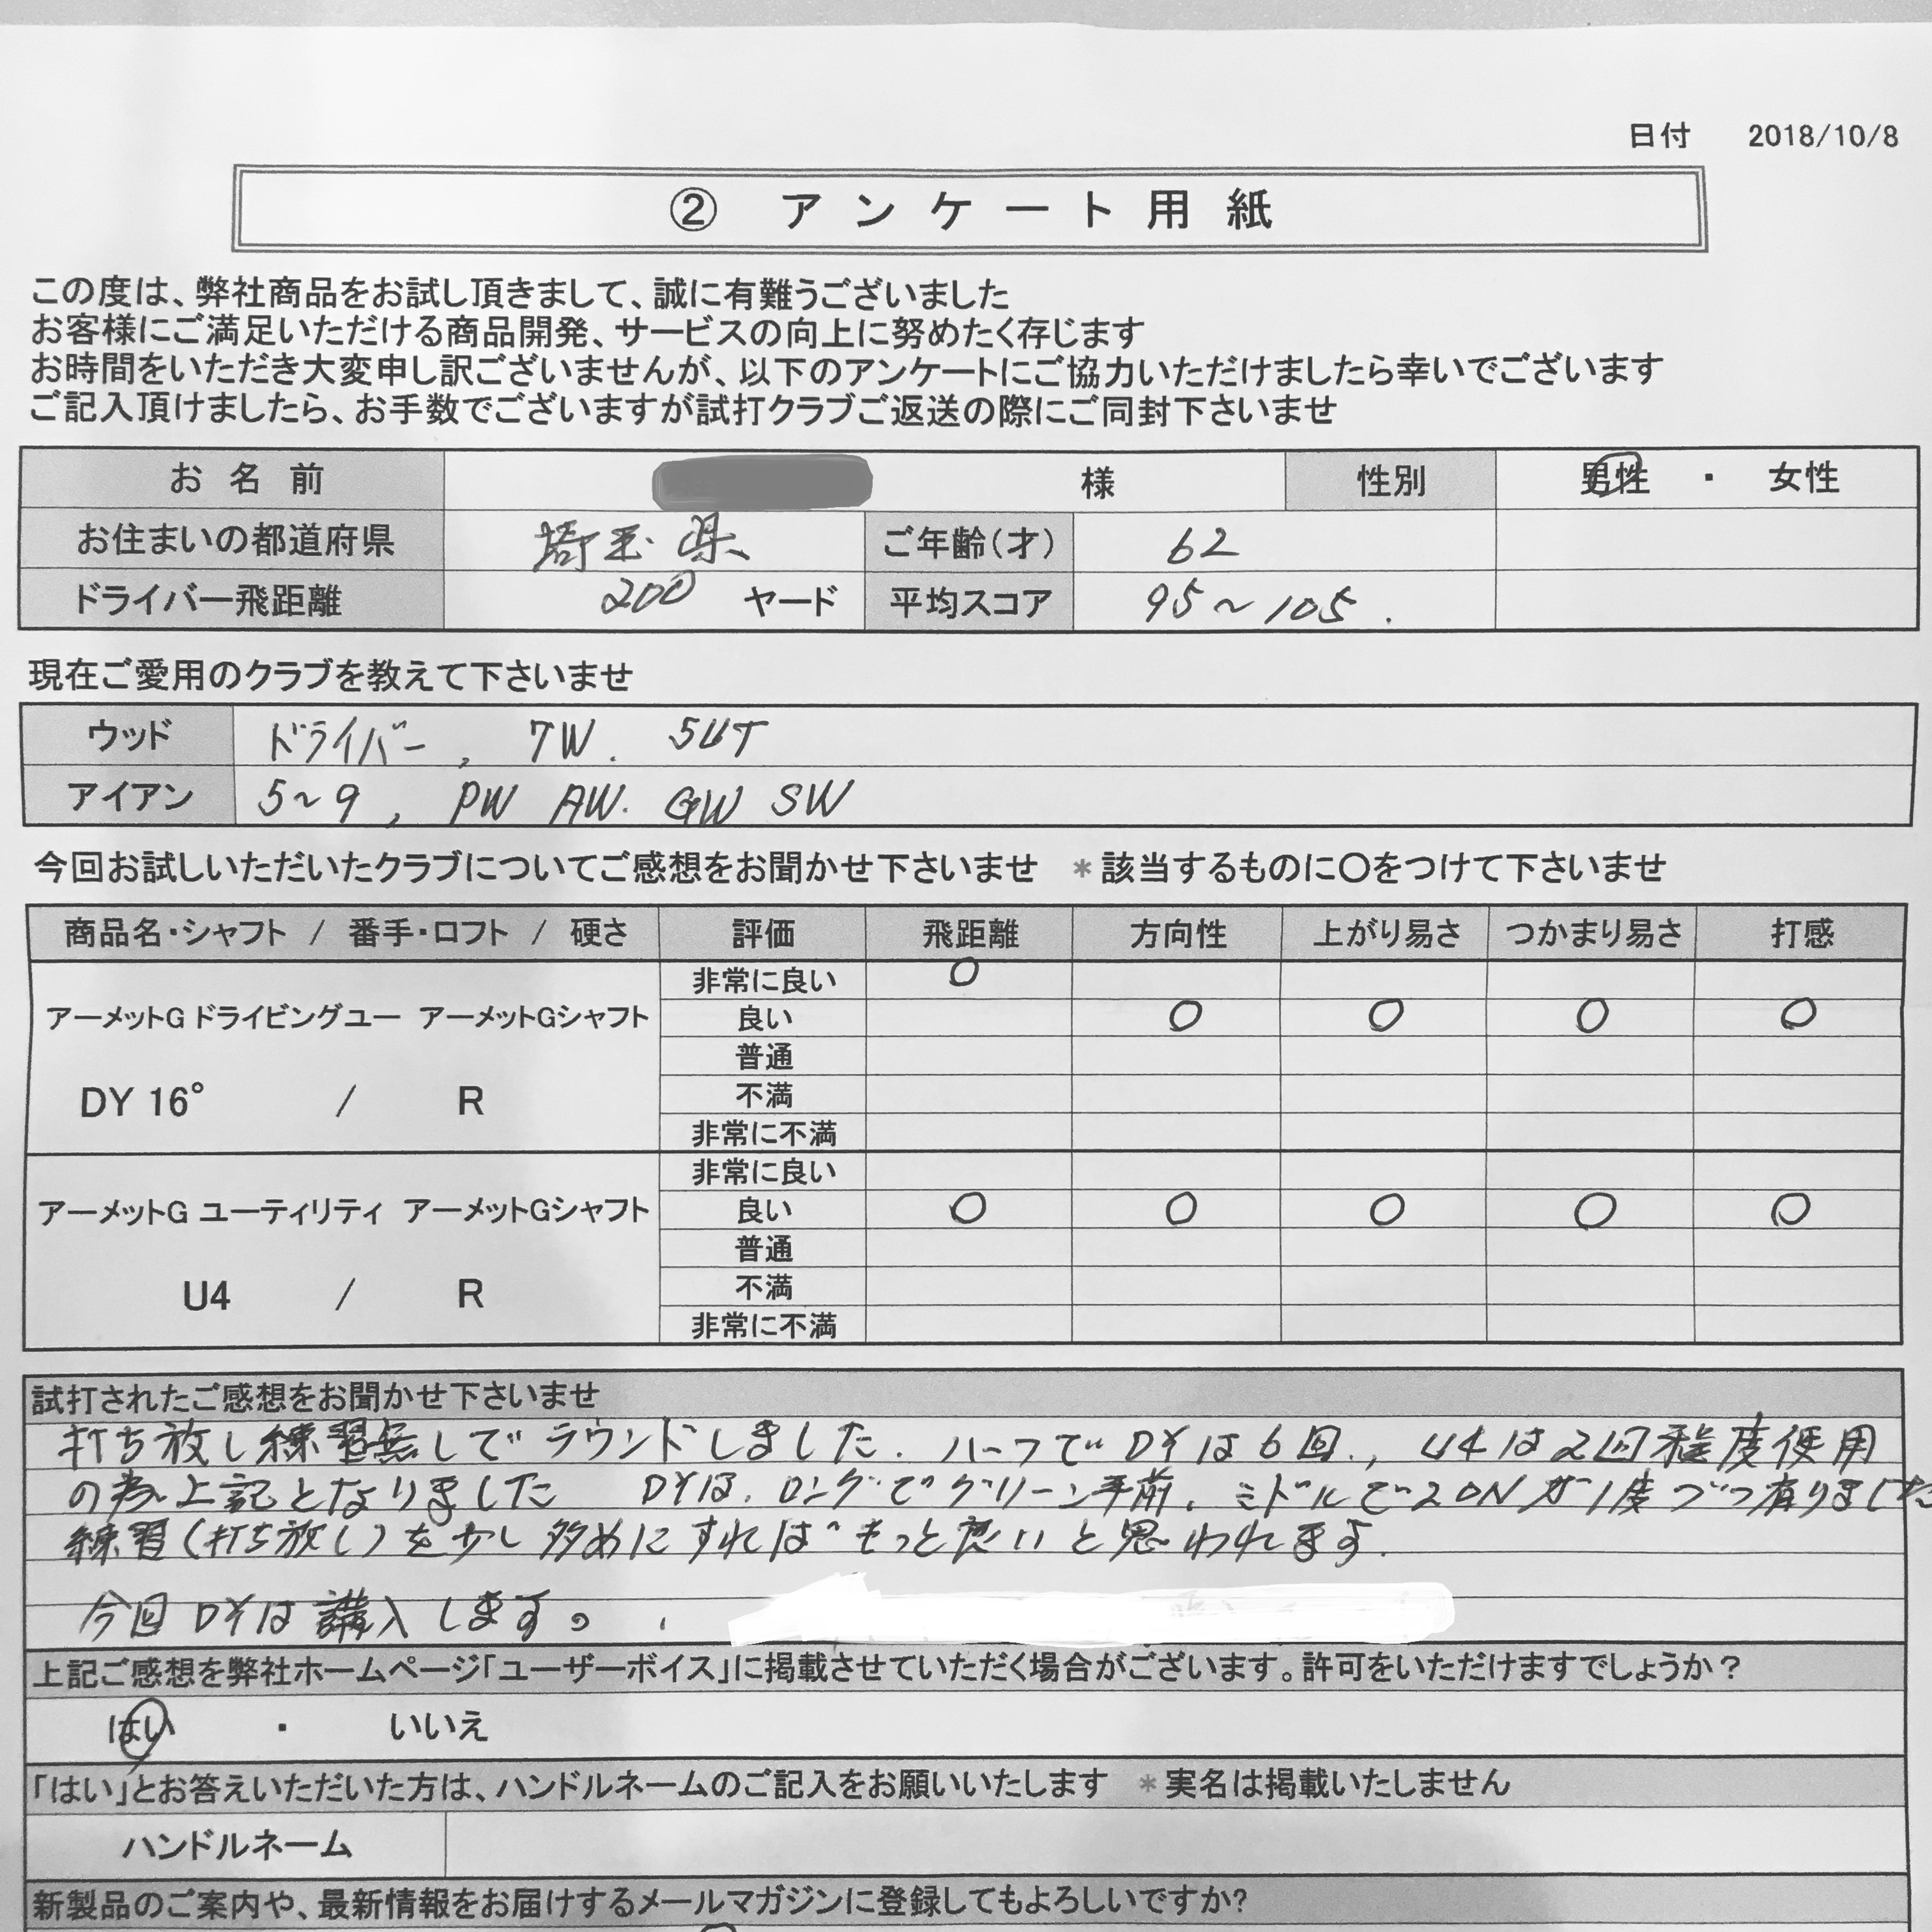 日付 2018/10/8
② アンケート用紙
この度は、弊社商品をお試し頂きまして、誠に有難うございました
お客様にご満足いただける商品開発、サービスの向上に努めたく存じます
お時間をいただき大変申し訳ございませんが、以下のアンケートにご協力いただけましたら幸いでございます
ご記入頂けましたら、お手数でございますが試打クラブご返送の際にご同封下さいませ
お名前 様 性別 男性 ・ 女性
お住まいの都道府県 埼玉県 ご年齢(才) 62
ドライバー飛距離 200 ヤード 平均スコア 95~105.
現在ご愛用のクラブを教えて下さいませ
ウッド ドライバー, 7W. 5UT
アイアン 5~9, PW AW. GW SW
今回お試しいただいたクラブについてご感想をお聞かせ下さいませ *該当するものに〇をつけて下さいませ
商品名・シャフト / 番手・ロフト / 硬さ 評価 飛距離 方向性 上がり易さ つかまり易さ 打感
非常に良い ○
アーメットG ドライビングユー アーメットGシャフト 良い ○ ○ ○ ○
普通
DY 16° / R 不満
非常に不満
非常に良い
アーメットG ユーティリティ アーメットGシャフト 良い ○ ○ ○ ○ ○
普通
U4 / R 不満
非常に不満
試打されたご感想をお聞かせ下さいませ
打ち放し練習無しでラウンドしました. ハーフでDYは6回., U4は2回程度使用
の為上記となりました DYは. ロングでグリーン手前. ミドルで2ONが1度づつ有りました
練習(打ち放し)を少し多めにすればもっと良いと思われます.
今回DYは購入します。
上記ご感想を弊社ホームページ「ユーザーボイス」に掲載させていただく場合がございます。許可をいただけますでしょうか？
はい ・ いいえ
「はい」とお答えいただいた方は、ハンドルネームのご記入をお願いいたします *実名は掲載いたしません
ハンドルネーム
新製品のご案内や、最新情報をお届けするメールマガジンに登録してもよろしいですか?